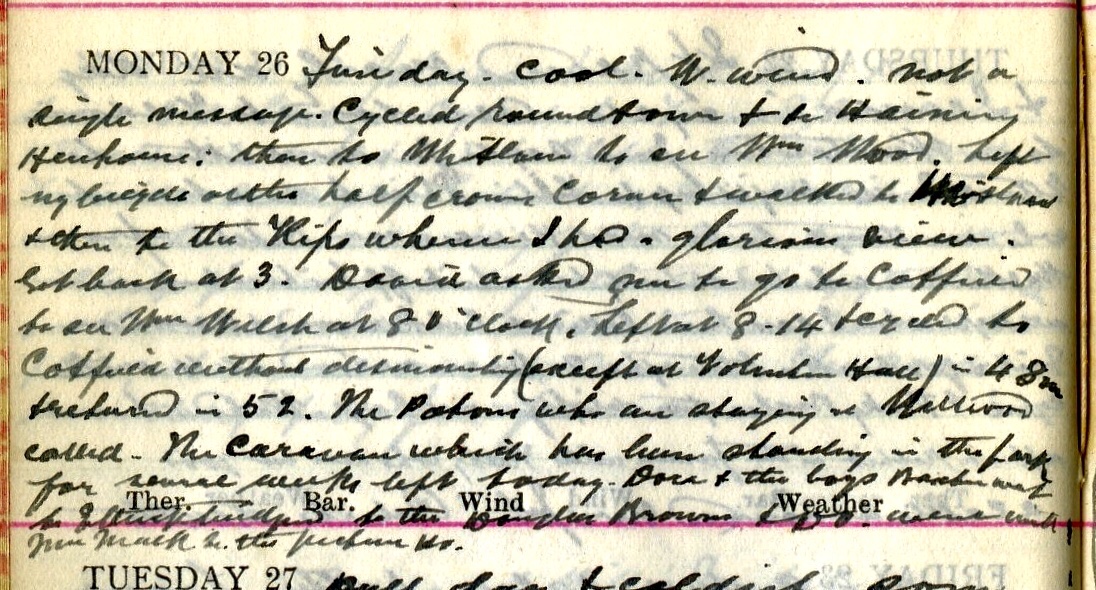 MONDAY 26 Fine day. Cool. W. wind. Not a
single message. Cycled round town & to Haining
Henhouse; then to to see Wm Wood. Left
my bicycle at the half crown Corner & walked to
& then to the Kips where I had a glorious view.
Got back at 3. David asked me to go to
to see Wm Welsh at 8 O'clock. Left at 8-14 & cycled to
without dismounting (except at Hall) in 48m
& returned in 52. The Patons who are staying at Wellwood
called. The Caravan which has been standing in the park
for several weeks left today. Dora & the boys went
Ther. Bar. Wind Weather
to Ettrickbridgend to the Douglas Browns & went with
Mrs to the picture Ho.
TUESDAY 27 Dull day & coldish